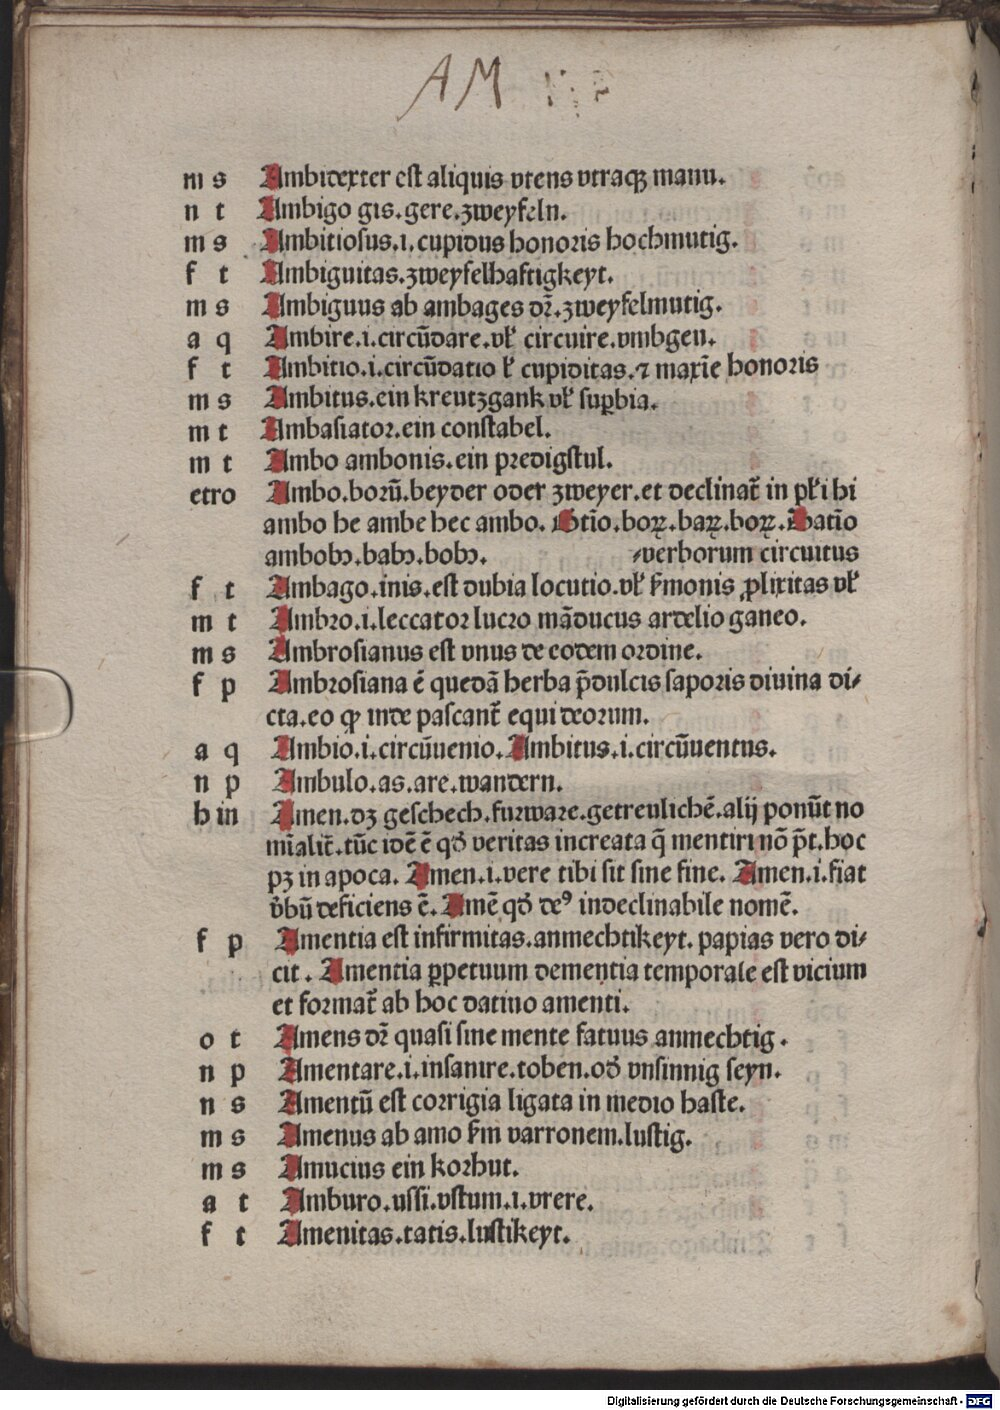 AM
m s Ambidexter est aliquis vtens vtraqꝫ manu.
n t Ambigo gis.gere.zweyfeln.
m s Ambitiosus.i.cupidus honoris hochmutig.
f t Ambiguitas.zweyfelhaftigkeyt.
m s Ambiguus ab ambages dr̄.zweyfelmutig.
a q Ambire.i.circūdare.vł circuire.vmbgen.
f t Ambitio.i.circūdatio ł cupiditas.⁊ maxīe honoris
m s Ambitus.ein kreutzgank vł suꝑbia.
m t Ambasiator.ein constabel.
m t Ambo ambonis.ein predigstul.
etro Ambo.borū.beyder oder zweyer.et declinat̄ in płi hi
ambo he ambe hec ambo. Gtīo.boꝝ.baꝝ.boꝝ.Datīo
ambobꝫ.babꝫ.bobꝫ. ⸗verborum circuitus
f t Ambago.inis.est dubia locutio.vł ẜmonis ꝓlixitas vł
m t Ambro.i.leccator lucro māducus ardelio ganeo.
m s Ambrosianus est vnus de eodem ordine.
f p Ambrosiana ē quedā herba p̄dulcis saporis diuina di⸗
cta.eo ꝙ inde pascant̄ equi deorum.
a q Ambio.i.circūuenio.Ambitus.i.circūuentus.
n p Ambulo.as.are.wandern.
h in Amen.dꝫ geschech.furware.getreulichē.alij ponūt no
mīalit̄.tūc idē ē qd̄ veritas increata q̄ mentiri nō p̄t.hoc
pꝫ in apoca. Amen.i.vere tibi sit sine fine. Amen.i.fiat
v̓bū deficiens ē.Amē qd̄ deꝰ indeclinabile nomē.
f p Amentia est infirmitas.anmechtikeyt.papias vero di⸗
cit. Amentia ꝑpetuum dementia temporale est vicium
et format̄ ab hoc datiuo amenti.
o t Amens dr̄ quasi sine mente fatuus anmechtig.
n p Amentare.i.insanire.toben.od̓ vnsinnig seyn.
n s Amentū est corrigia ligata in medio haste.
m s Amenus ab amo ẜm varronem.lustig.
m s Amucius ein korhut.
a t Amburo.ussi.vstum.i.vrere.
f t Amenitas.tatis.lustikeyt.
Digitalisierung gefördert durch die Deutsche Forschungsgemeinschaft - DFG